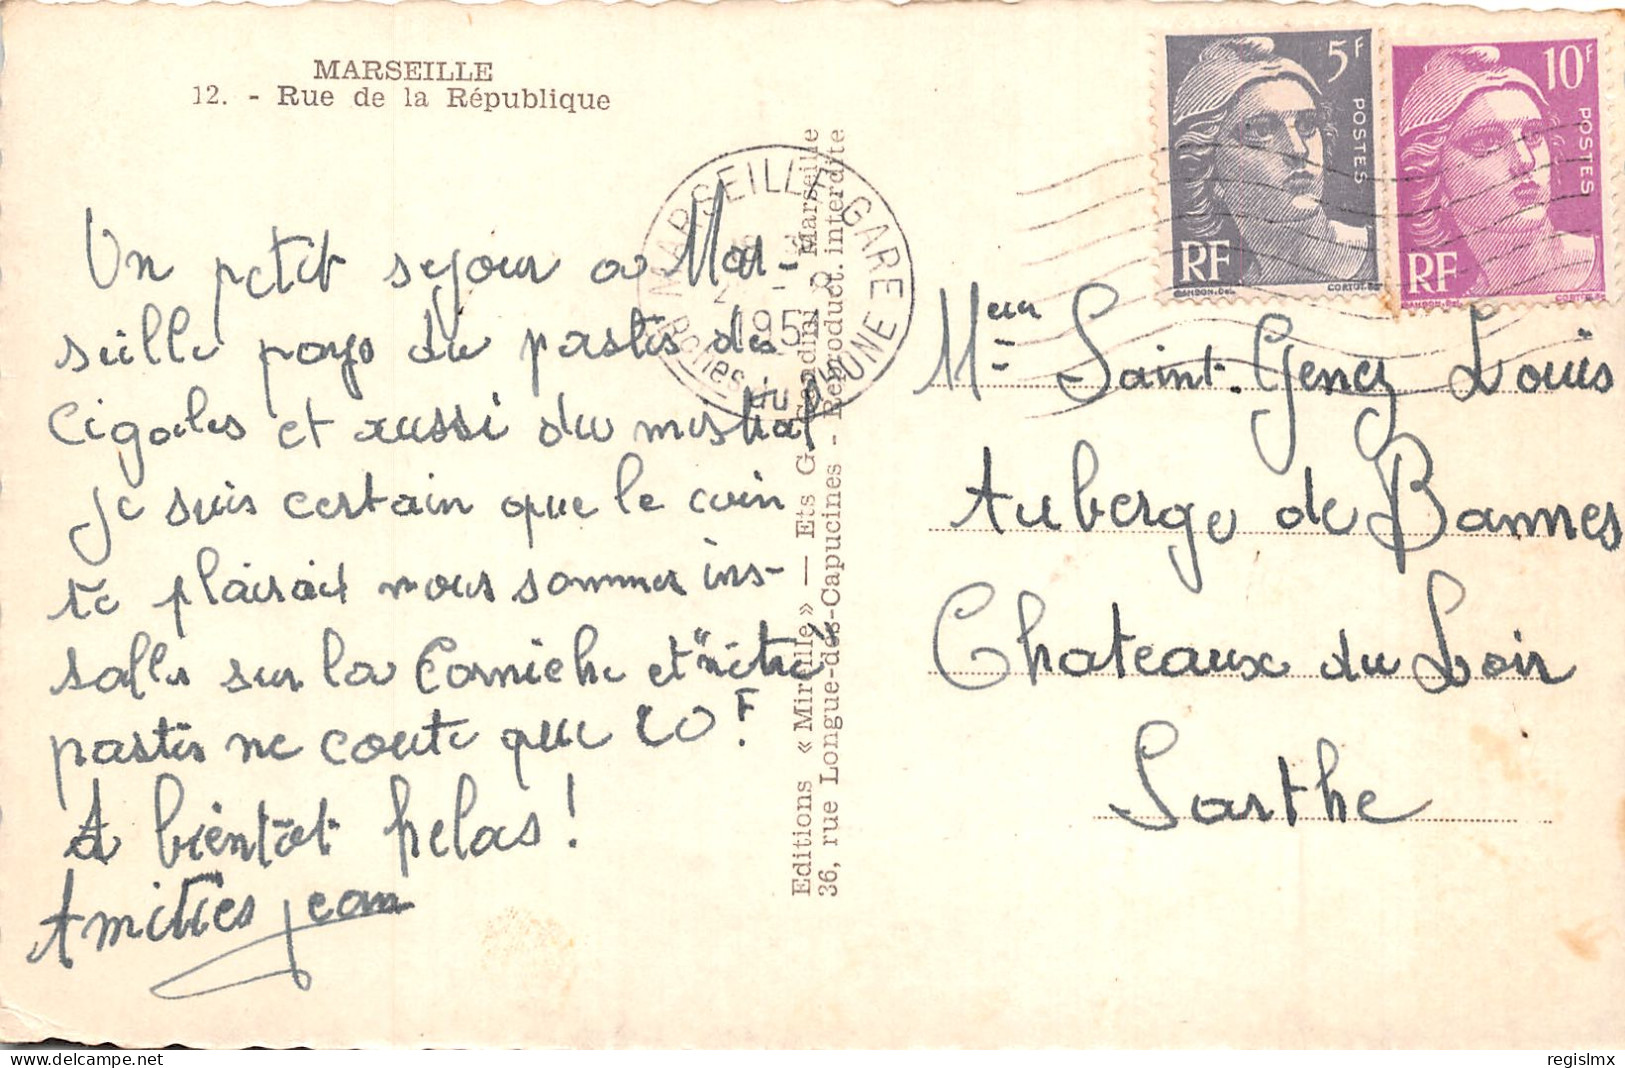 MARSEILLE
12. - Rue de la République
Un petit sejour a Mar-
seille pays du pastis des
Cigales et aussi du mistral
je suis certain que le coin
te plairait nous sommes ins-
sallés sur la Corniche et "nôtre"
pastis ne coute que 20F.
A bientôt helas!
Amitiés Jean
Editions « Mireille » — Ets G. Gandini, Marseille
36, rue Longue-des-Capucines - Reproduct. interdite
MARSEILLE GARE
1951
Bches du RHONE
5F
POSTES
RF
GANDON.Del.
CORTOT.Sc
10F
POSTES
RF
GANDON.Del.
CORTOT.Sc
Saint. Gency Louis
Auberge de Bannes
Chateaux du Loir
Sarthe
delcampe.net
regislmx